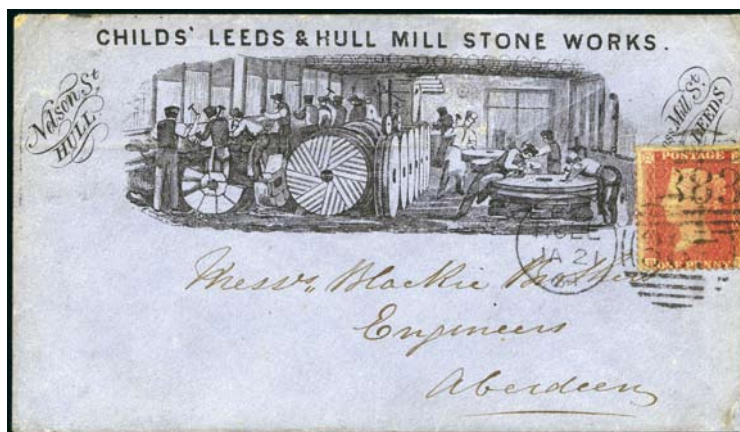 CHILDS' LEEDS & HULL MILL STONE WORKS.
Nelson St
HULL
Mill St
LEEDS
POSTAGE
383
ONE PENNY
HULL
JA 21
Messrs, Blackie
Engineers
Aberdeen